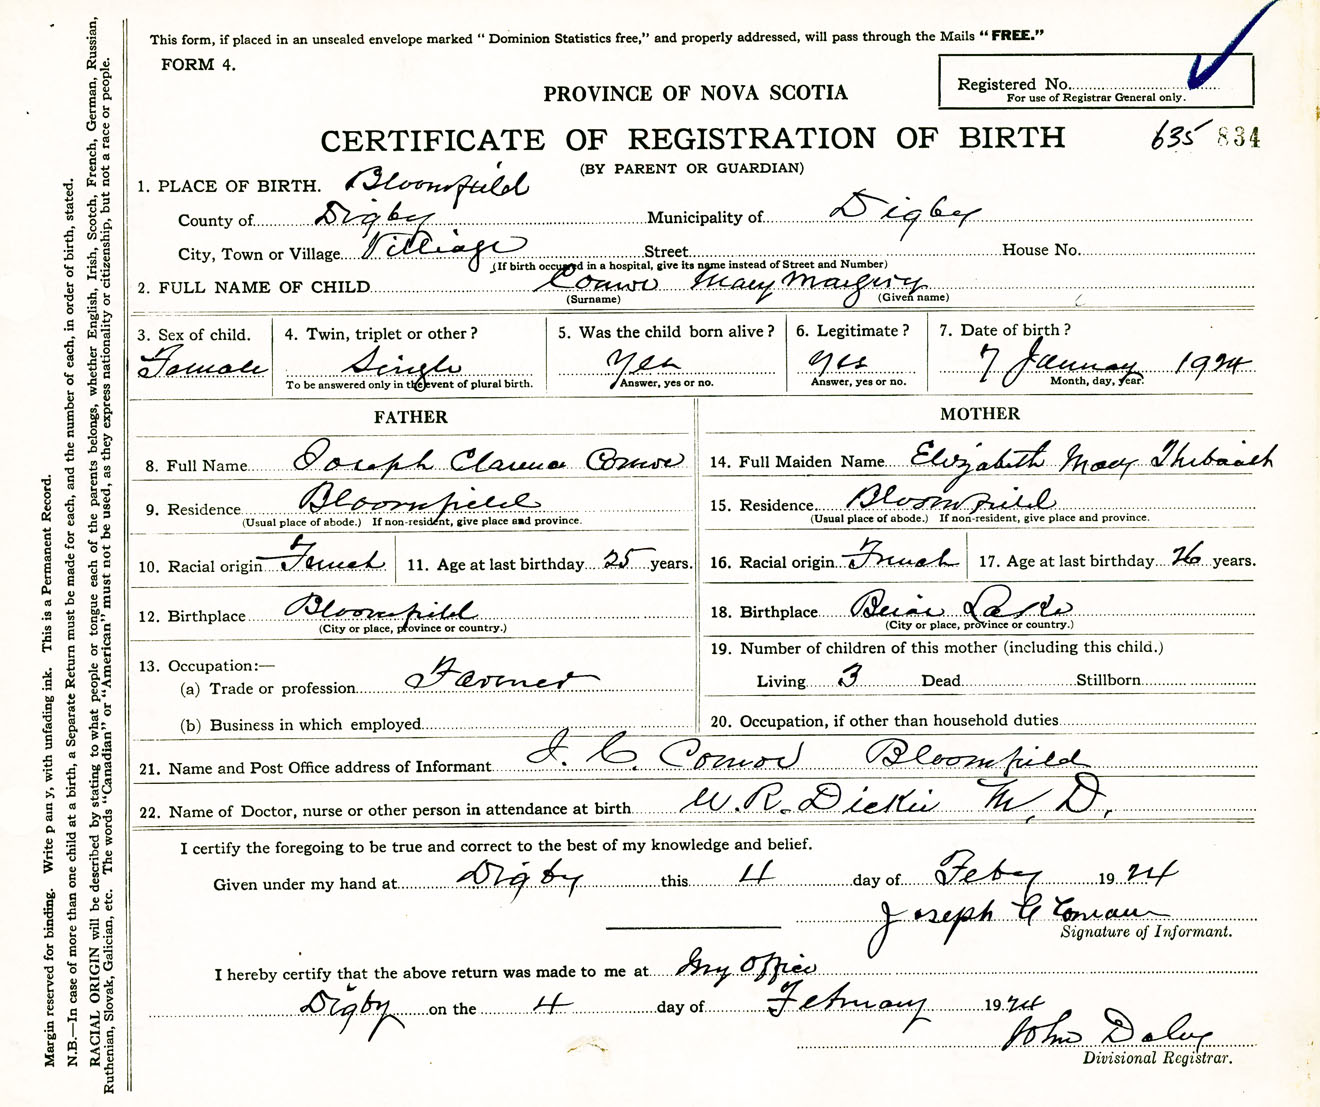 This form, if placed in an unsealed envelope marked “ Dominion Statistics free,” and properly addressed, will pass through the Mails “ FREE.”
FORM 4.
Registered No.
For use of Registrar General only.
PROVINCE OF NOVA SCOTIA
CERTIFICATE OF REGISTRATION OF BIRTH 635 834
(BY PARENT OR GUARDIAN)
1. PLACE OF BIRTH. Bloomfield
County of Digby Municipality of Digby
City, Town or Village Village Street House No.
(If birth occured in a hospital, give its name instead of Street and Number)
2. FULL NAME OF CHILD Mary
(Surname) (Given name)
3. Sex of child. 4. Twin, triplet or other ? 5. Was the child born alive ? 6. Legitimate ? 7. Date of birth ?
Female Single Yes Yes 7 January 1924
To be answered only in the event of plural birth. Answer, yes or no. Answer, yes or no. Month, day, year.
FATHER
8. Full Name Joseph Clarence
9. Residence Bloomfield
(Usual place of abode.) If non-resident, give place and province.
10. Racial origin French 11. Age at last birthday 25 years.
12. Birthplace Bloomfield
(City or place, province or country.)
13. Occupation:—
(a) Trade or profession Farmer
(b) Business in which employed
MOTHER
14. Full Maiden Name Elizabeth Mary
15. Residence Bloomfield
(Usual place of abode.) If non-resident, give place and province.
16. Racial origin French 17. Age at last birthday 26 years.
18. Birthplace Lake
(City or place, province or country.)
19. Number of children of this mother (including this child.)
Living 3 Dead Stillborn
20. Occupation, if other than household duties
21. Name and Post Office address of Informant J. C. Bloomfield
22. Name of Doctor, nurse or other person in attendance at birth W. R. Dickie M. D.
I certify the foregoing to be true and correct to the best of my knowledge and belief.
Given under my hand at Digby this 4 day of Feby 1924
Joseph C Comeau
Signature of Informant.
I hereby certify that the above return was made to me at my office
Digby on the 4 day of February 1924
John Daley
Divisional Registrar.
Margin reserved for binding. Write p ain y, with unfading ink. This is a Permanent Record.
N.B.—In case of more than one child at a birth, a Separate Return must be made for each, and the number of each, in order of birth, stated.
RACIAL ORIGIN will be described by stating to what people or tongue each of the parents belongs, whether English, Irish, Scotch, French, German, Russian,
Ruthenian, Slovak, Galician, etc. The words “Canadian” or “American” must not be used, as they express nationality or citizenship, but not a race or people.